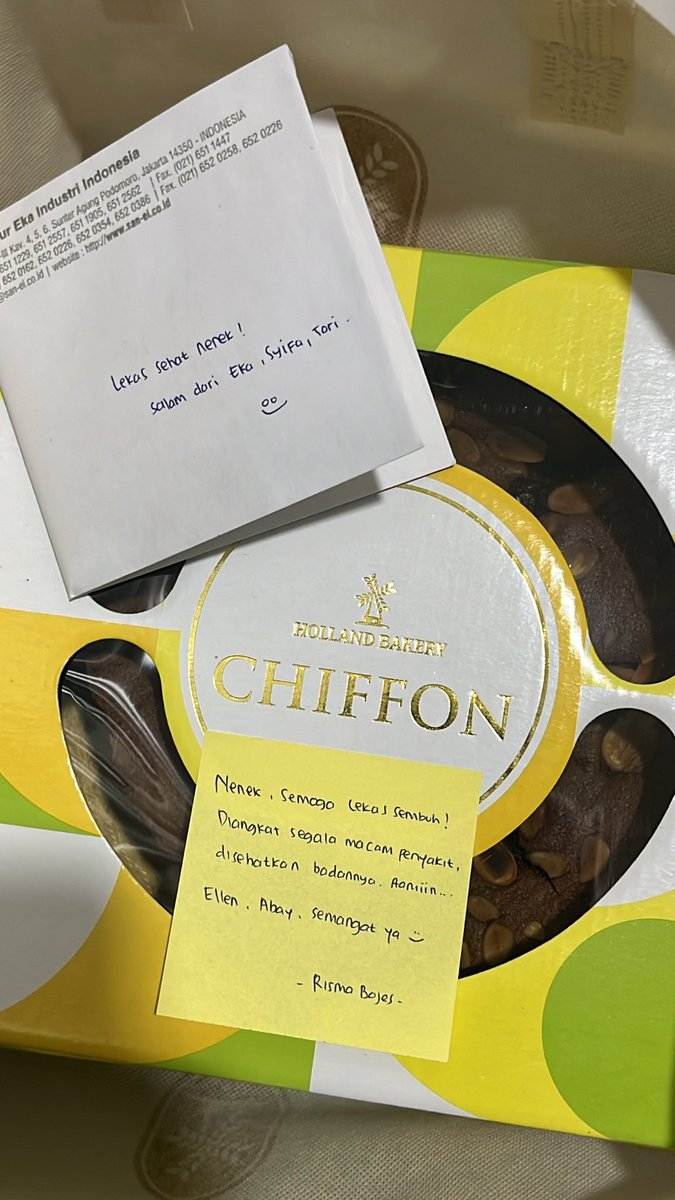 ur Eka Industri Indonesia
Kav. 4, 5, 6. Sunter Agung Podomoro, Jakarta 14350 - INDONESIA
651 1229, 651 2557, 651 1905, 651 2562 | Fax. (021) 651 1447
652 0162, 652 0226, 652 0354, 652 0386 | Fax. (021) 652 0258, 652 0226
@san-ei.co.id | website : http://www.san-ei.co.id
Lekas sehat nenek!
salam dari Eka, Syifa, Tari.
HOLLAND BAKERY
CHIFFON
Nenek, semoga lekas sembuh!
Diangkat segala macam penyakit,
disehatkan badannya. Aamiin...
Ellen, Abay, semangat ya
- Risma Bojes -